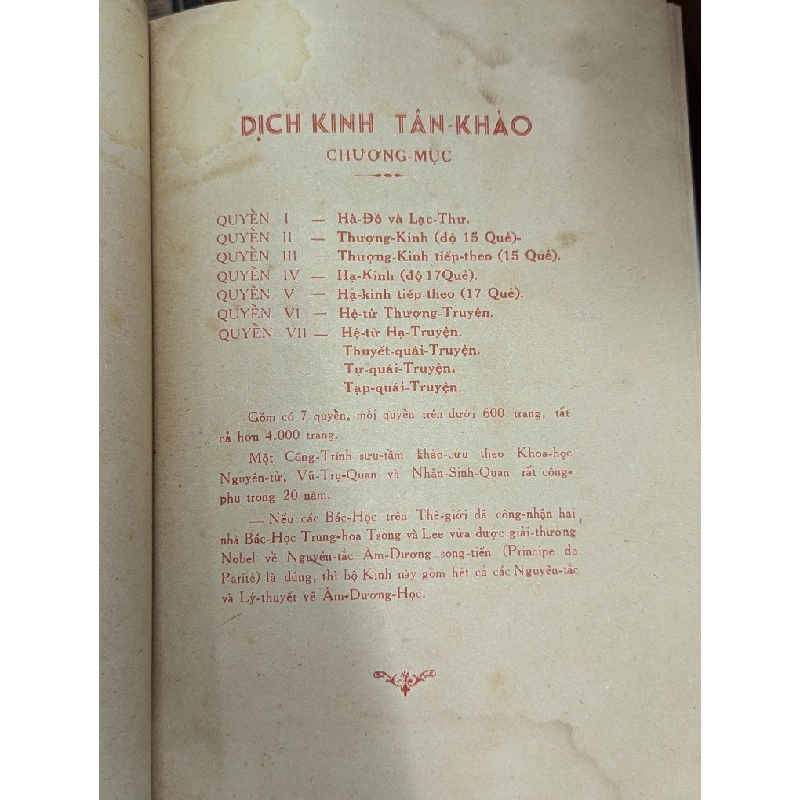 DỊCH KINH TÂN-KHẢO
CHƯƠNG-MỤC
QUYỂN I — Hà-Đồ và Lạc-Thư.
QUYỂN II — Thượng-Kinh (độ 15 Quẻ)-
QUYỂN III — Thượng-Kinh tiếp-theo (15 Quẻ).
QUYỂN IV — Hạ-Kinh (độ 17Quẻ).
QUYỂN V — Hạ-kinh tiếp theo (17 Quẻ).
QUYỂN VI — Hệ-từ Thượng-Truyện.
QUYỂN VII — Hệ-từ Hạ-Truyện.
Thuyết-quái-Truyện.
Tự-quái-Truyện.
Tạp-quái-Truyện.
Gồm có 7 quyển, mỗi quyển trên dưới 600 trang, tất
cả hơn 4.000 trang.
Một Công-Trình sưu-tầm khảo-cứu theo Khoa-học
Nguyên-tử, Vũ-Trụ-Quan và Nhân-Sinh-Quan rất công-
phu trong 20 năm.
— Nếu các Bác-Học trên Thế-giới đã công-nhận hai
nhà Bác-Học Trung-hoa Tsong và Lee vừa được giải-thưởng
Nobel về Nguyên-tắc Âm-Dương song-tiến (Principe de
Parité) là đúng, thì bộ Kinh này gồm hết cả các Nguyên-tắc
và Lý-thuyết về Âm-Dương-Học.